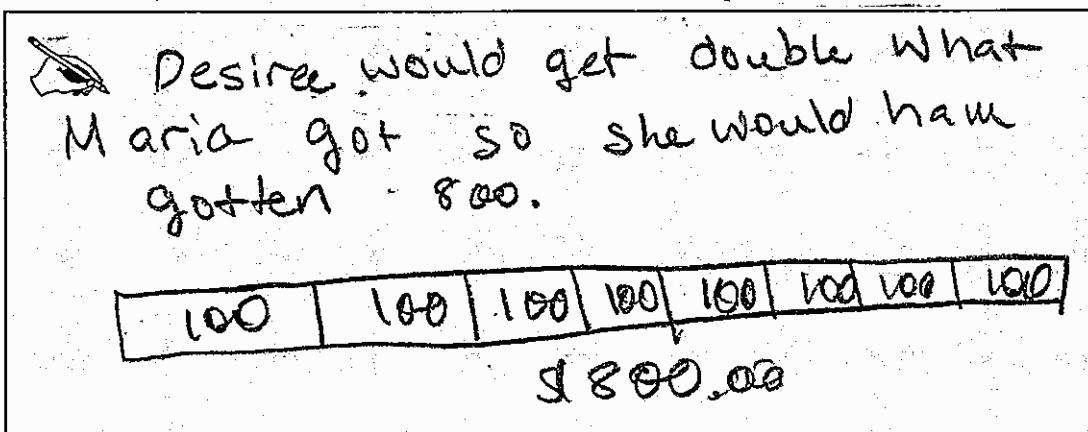 Desiree would get double what
Maria got so she would have
gotten 800.
100 100 100 100 100 100 100 100
$800.00